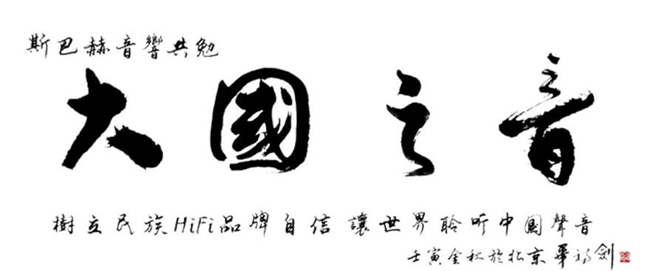 斯巴赫音響共勉
大國之音
樹立民族HiFi品牌自信 讓世界聆听中國聲音
壬寅金秋於北京 華 劍